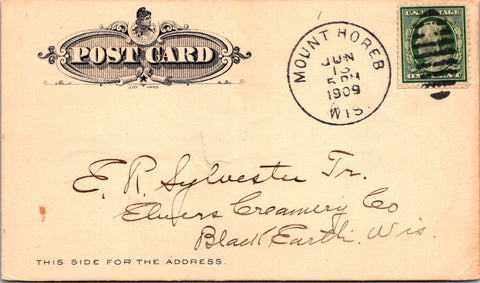 POST CARD
MOUNT HOREB
JUN
5 PM
1909
WIS.
U.S. POSTAGE
E. R. Sylvester Tr.
Elvers Creamery Co
Black Earth. Wis.
THIS SIDE FOR THE ADDRESS.